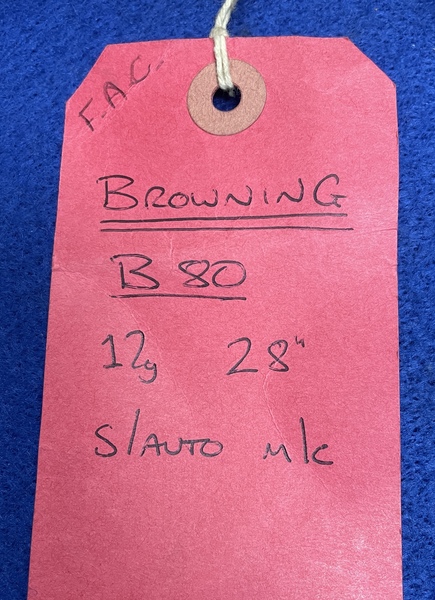 F.A.C.
BROWNING
B 80
12g 28"
S/AUTO M/C